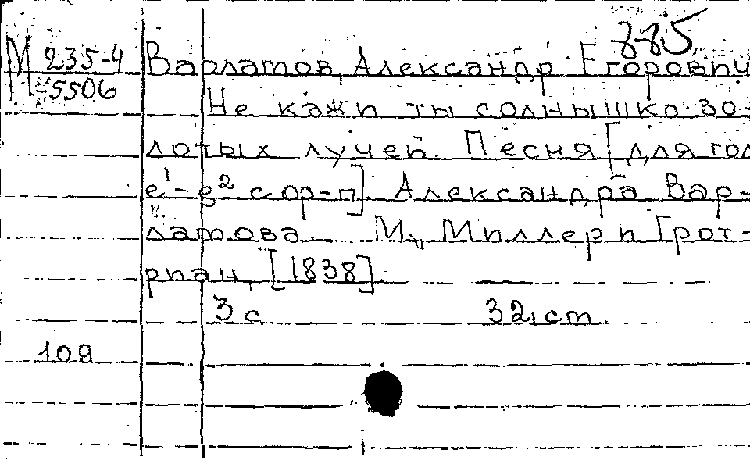 885
М 235-4 Варламов, Александр Егорович
5506 Не кажи ты солнышко зо-
лотых лучей. Песня [для гол
e¹-g² с ор-п]. Александра Вар-
ламова. М., Миллер и Грот-
риан, [1838]
3 с 32 см.
109